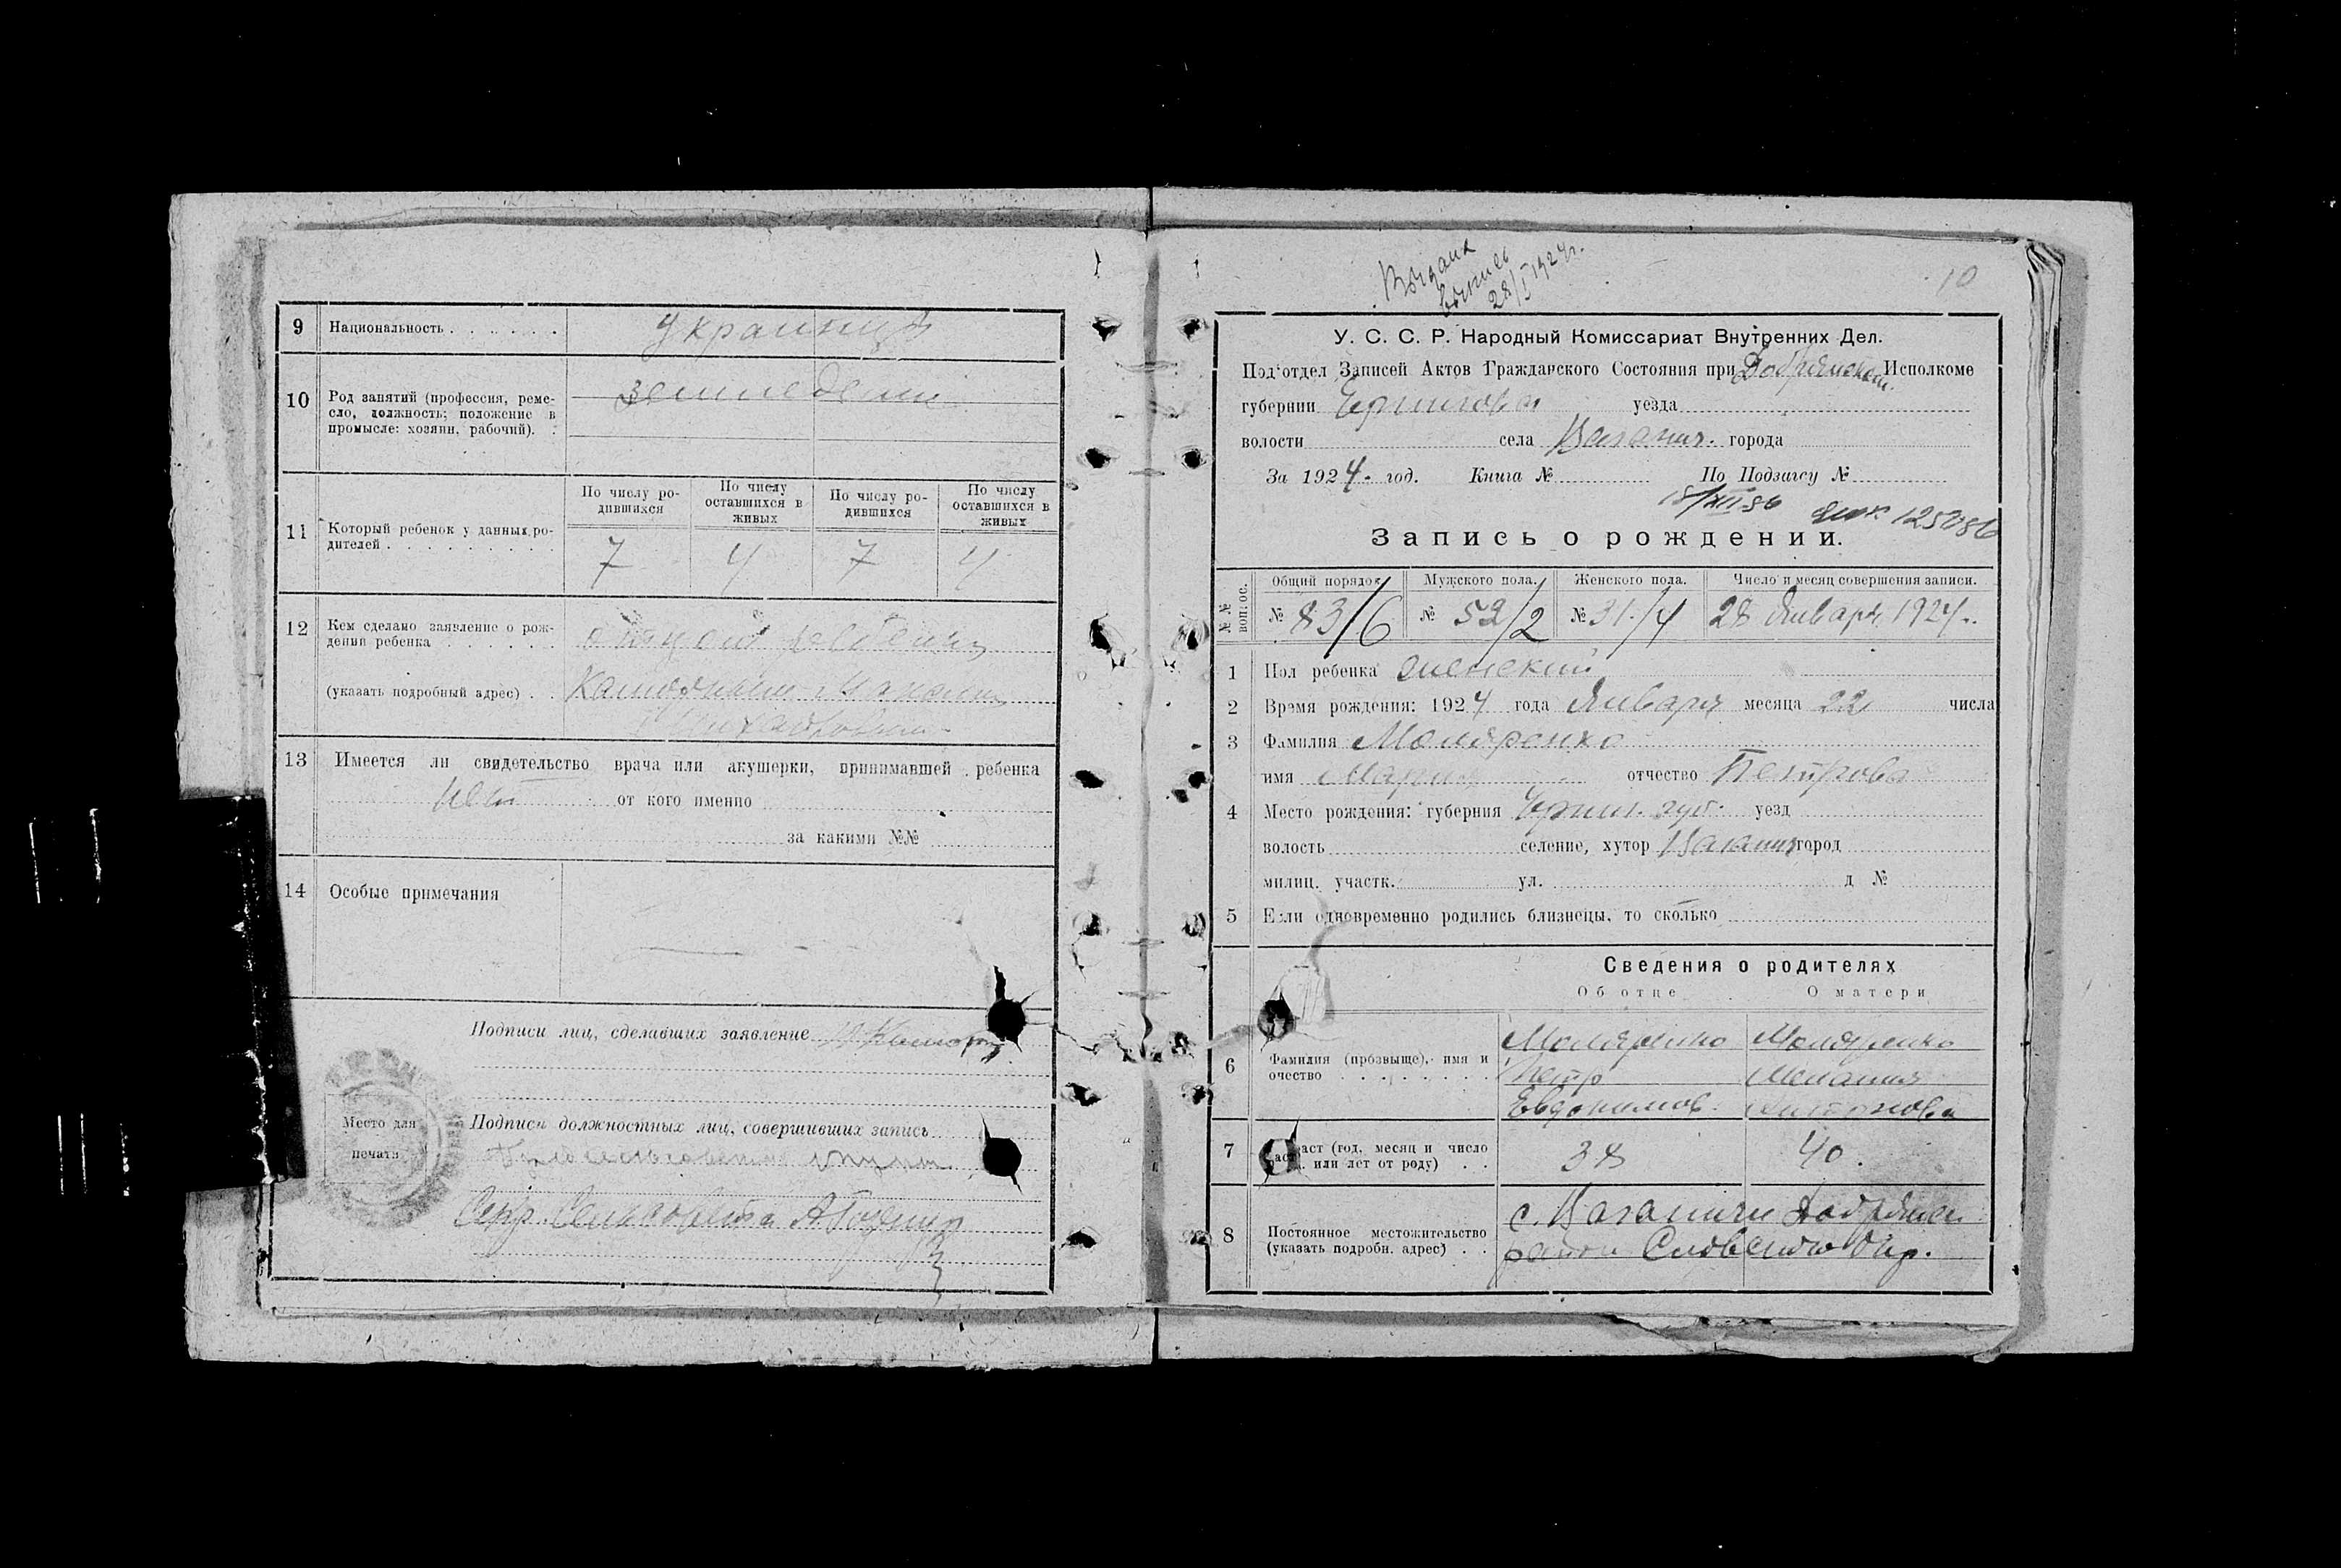 9 Национальность . . . . . . украинцы
10 Род занятий (профессия, реме-
сло, должность; положение в
промысле: хозяин, рабочий). .
земледелие
11 Который ребенок у данных ро-
дителей . . . . . . . . . .
По числу ро-
дившихся
По числу
оставшихся в
живых
По числу ро-
дившихся
По числу
оставшихся в
живых
7 4 7 4
12 Кем сделано заявление о рож-
дении ребенка . . . . . .
отцом ребенка
(указать подробный адрес) . .
13 Имеется ли свидетельство врача или акушерки, принимавшей ребенка
нет от кого именно
за какими №№
14 Особые примечания
Подписи лиц, сделавших заявление
Место для
печати
Подписи должностных лиц, совершивших запись
Секр. Сельсовета
Выдана
выпись
28/I 1924г.
10
У. С. С. Р. Народный Комиссариат Внутренних Дел.
Под'отдел Записей Актов Гражданского Состояния при Добрянском Исполкоме
губернии Чернигов уезда
волости села города
За 1924. год. Книга № По Подзагсу №
18/XII-86 125086
Запись о рождении.
№ №
воп. ос.
Общий порядок Мужского пола. Женского пола. Число и месяц совершения записи.
№ 83/6 № 52/2 № 31./4 28 Января 1924.
1 Пол ребенка женский
2 Время рождения: 1924 года Января месяца 22 числа
3 Фамилия Моляренко
имя Мария отчество Петрова
4 Место рождения: губерния Черниг. губ. уезд
волость селение, хутор город
милиц. участк. ул. д №
5 Если одновременно родились близнецы, то сколько
Сведения о родителях
Об отце О матери
6 Фамилия (прозвыще), имя и
очество . . . . . . . .
Моляренко Моляренко
Петр Мелания
Евдокимов. Антонова
7 аст (год, месяц и число
. или лет от роду) . .
38 40.
8 Постоянное местожительство
(указать подробн. адрес) . .
с. Добрянск
район Сновского Окр.